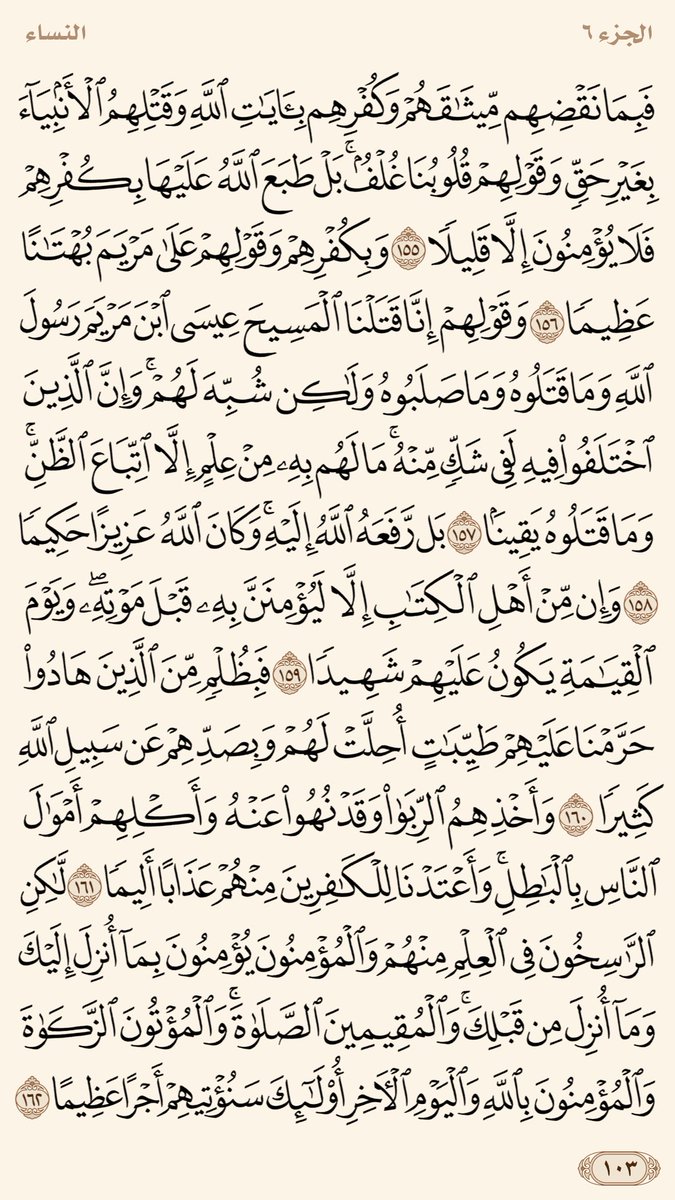 الجزء ٦
النساء
فَبِمَا نَقْضِهِم مِّيثَٰقَهُمْ وَكُفْرِهِم بِـَٔايَٰتِ ٱللَّهِ وَقَتْلِهِمُ ٱلْأَنۢبِيَآءَ
بِغَيْرِ حَقٍّ وَقَوْلِهِمْ قُلُوبُنَا غُلْفٌۢ ۚ بَلْ طَبَعَ ٱللَّهُ عَلَيْهَا بِكُفْرِهِمْ
فَلَا يُؤْمِنُونَ إِلَّا قَلِيلًا ١٥٥ وَبِكُفْرِهِمْ وَقَوْلِهِمْ عَلَىٰ مَرْيَمَ بُهْتَٰنًا
عَظِيمًا ١٥٦ وَقَوْلِهِمْ إِنَّا قَتَلْنَا ٱلْمَسِيحَ عِيسَى ٱبْنَ مَرْيَمَ رَسُولَ
ٱللَّهِ وَمَا قَتَلُوهُ وَمَا صَلَبُوهُ وَلَٰكِن شُبِّهَ لَهُمْ ۚ وَإِنَّ ٱلَّذِينَ
ٱخْتَلَفُوا۟ فِيهِ لَفِى شَكٍّ مِّنْهُ ۚ مَا لَهُم بِهِۦ مِنْ عِلْمٍ إِلَّا ٱتِّبَاعَ ٱلظَّنِّ ۚ
وَمَا قَتَلُوهُ يَقِينًۢا ١٥٧ بَل رَّفَعَهُ ٱللَّهُ إِلَيْهِ ۚ وَكَانَ ٱللَّهُ عَزِيزًا حَكِيمًا
١٥٨ وَإِن مِّنْ أَهْلِ ٱلْكِتَٰبِ إِلَّا لَيُؤْمِنَنَّ بِهِۦ قَبْلَ مَوْتِهِۦ ۖ وَيَوْمَ
ٱلْقِيَٰمَةِ يَكُونُ عَلَيْهِمْ شَهِيدًا ١٥٩ فَبِظُلْمٍ مِّنَ ٱلَّذِينَ هَادُوا۟
حَرَّمْنَا عَلَيْهِمْ طَيِّبَٰتٍ أُحِلَّتْ لَهُمْ وَبِصَدِّهِمْ عَن سَبِيلِ ٱللَّهِ
كَثِيرًا ١٦٠ وَأَخْذِهِمُ ٱلرِّبَوٰا۟ وَقَدْ نُهُوا۟ عَنْهُ وَأَكْلِهِمْ أَمْوَٰلَ
ٱلنَّاسِ بِٱلْبَٰطِلِ ۚ وَأَعْتَدْنَا لِلْكَٰفِرِينَ مِنْهُمْ عَذَابًا أَلِيمًا ١٦١ لَّٰكِنِ
ٱلرَّٰسِخُونَ فِى ٱلْعِلْمِ مِنْهُمْ وَٱلْمُؤْمِنُونَ يُؤْمِنُونَ بِمَآ أُنزِلَ إِلَيْكَ
وَمَآ أُنزِلَ مِن قَبْلِكَ ۚ وَٱلْمُقِيمِينَ ٱلصَّلَوٰةَ ۚ وَٱلْمُؤْتُونَ ٱلزَّكَوٰةَ
وَٱلْمُؤْمِنُونَ بِٱللَّهِ وَٱلْيَوْمِ ٱلْـَٔاخِرِ أُو۟لَٰٓئِكَ سَنُؤْتِيهِمْ أَجْرًا عَظِيمًا ١٦٢
١٠٣